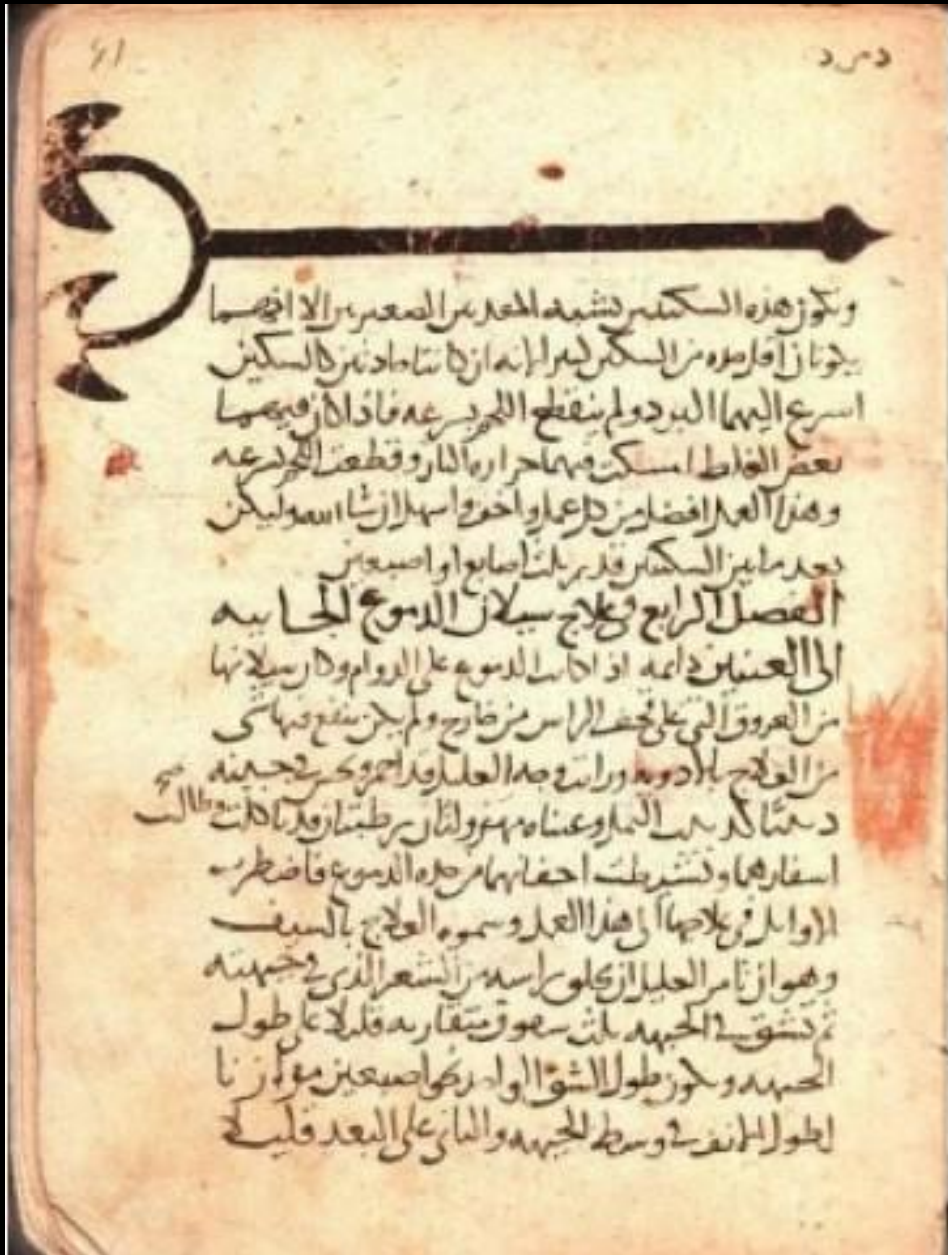 وتكون هذه السكينين تشبه المقدين الصغيرين الا انهما
يكونان اقل حده من السكين ليبر لانه ان كانتا حادتين كالسكين
اسرع اليهما البرد ولم ينقطع اللحم بسرعه فاذا كان فيهما
بعض الغلظ امسكت فيهما حراره النار وقطعت اللحم بسرعه
وهذا العمل افضل من كل عمل واخف واسهل ان شا الله وليكن
بعد ما بين السكينين قدر ثلث اصابع او اصبعين
الفصل الرابع في علاج سيلان الدموع
الى العينين دايمه اذا كانت الدموع على الدوام وكان سيلانها
من العروق التي على قحف الراس من خارج ولم يكن ينفع فيها شي
من العلاج بالادويه ورايت وجه العليل قد احمر ويحس في جبينه
دبيبا كدبيب النمل وعيناه مهزولتان رطبتان قد تاكلت
اشفارهما وتشيطت اجفانهما من حده الدموع فاضطرب
الاوايل في علاجها الى هذا العمل وسموه العلاج بالسيف
وهو ان تامر العليل ان يحلق راسه من الشعر الذي في جبهته
ثم تشق في الجبهه ثلث شقوق متقاربه على طول
الجبهه ويكون طول الشق الواحد نحو اصبعين موازنا
لطول الانف في وسط الجبهه والثاني على البعد قليلا